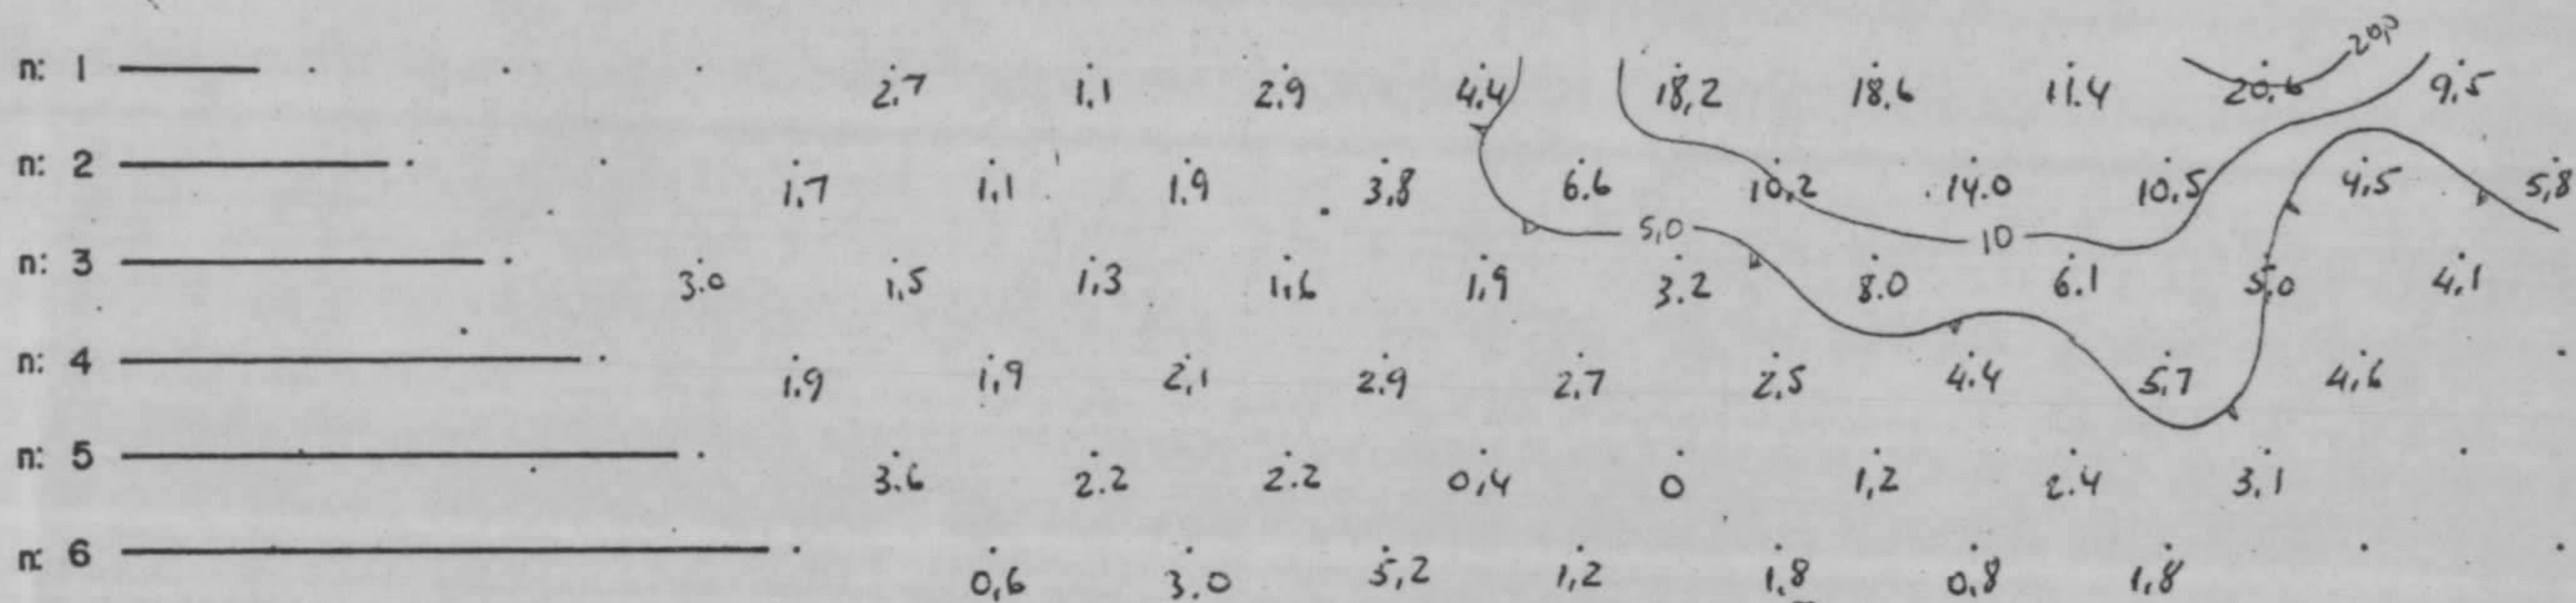 20,0
n: 1 2.7 1,1 2.9 4.4 18,2 18.6 11.4 20.6 9.5
n: 2 1.7 1,1 1.9 3,8 6.6 10,2 14.0 10.5 4,5 5,8
5,0 10
n: 3 3.0 1,5 1,3 1,6 1,9 3.2 8.0 6.1 5,0 4.1
n: 4 1.9 1,9 2,1 2.9 2.7 2,5 4.4 5.7 4,6
n: 5 3.6 2.2 2.2 0,4 0 1,2 2.4 3,1
n: 6 0,6 3.0 5,2 1,2 1,8 0,8 1,8